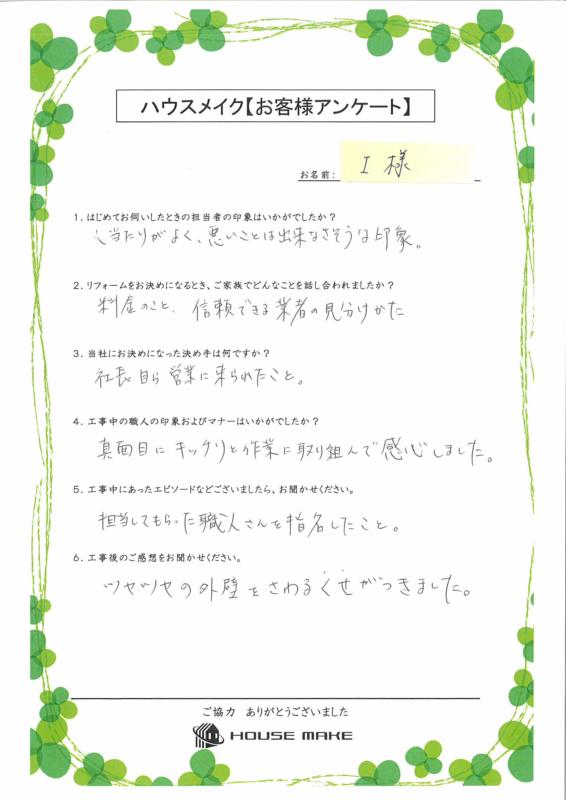 ハウスメイク【お客様アンケート】
お名前: I 様
1. はじめてお伺いしたときの担当者の印象はいかがでしたか?
人当たりがよく、悪いことは出来なさそうな印象。
2. リフォームをお決めになるとき、ご家族でどんなことを話し合われましたか?
料金のこと、信頼できる業者の見分けかた
3. 当社にお決めになった決め手は何ですか?
社長自ら営業に来られたこと。
4. 工事中の職人の印象およびマナーはいかがでしたか?
真面目にキッチリと作業に取り組んで感心しました。
5. 工事中にあったエピソードなどございましたら、お聞かせください。
担当してもらった職人さんを指名したこと。
6. 工事後のご感想をお聞かせください。
ツヤツヤの外壁をさわるくせがつきました。
ご協力 ありがとうございました
HOUSE MAKE